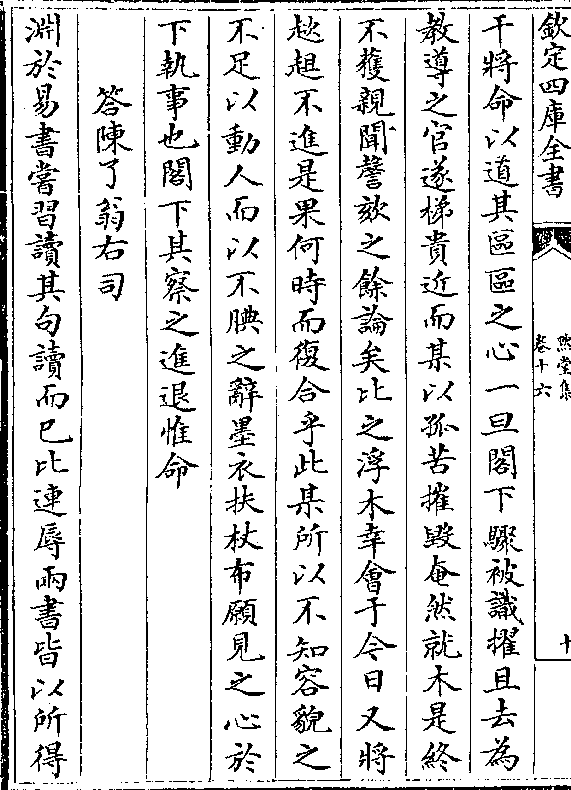 欽定四庫全書
黙堂集
卷十六
十
干將命以道其區區之心一旦閣下驟被識擢且去為
教導之官遂梯貴近而某以孤苦摧毀奄然就木是終
不獲親聞謦欬之餘論矣比之浮木幸會于今日又將
趑趄不進是果何時而復合乎此某所以不知容貌之
不足以動人而以不腆之辭墨衣扶杖布願見之心於
下執事也閣下其察之進退惟命
答陳了翁右司
淵於易書嘗習讀其句讀而已比連辱兩書皆以所得